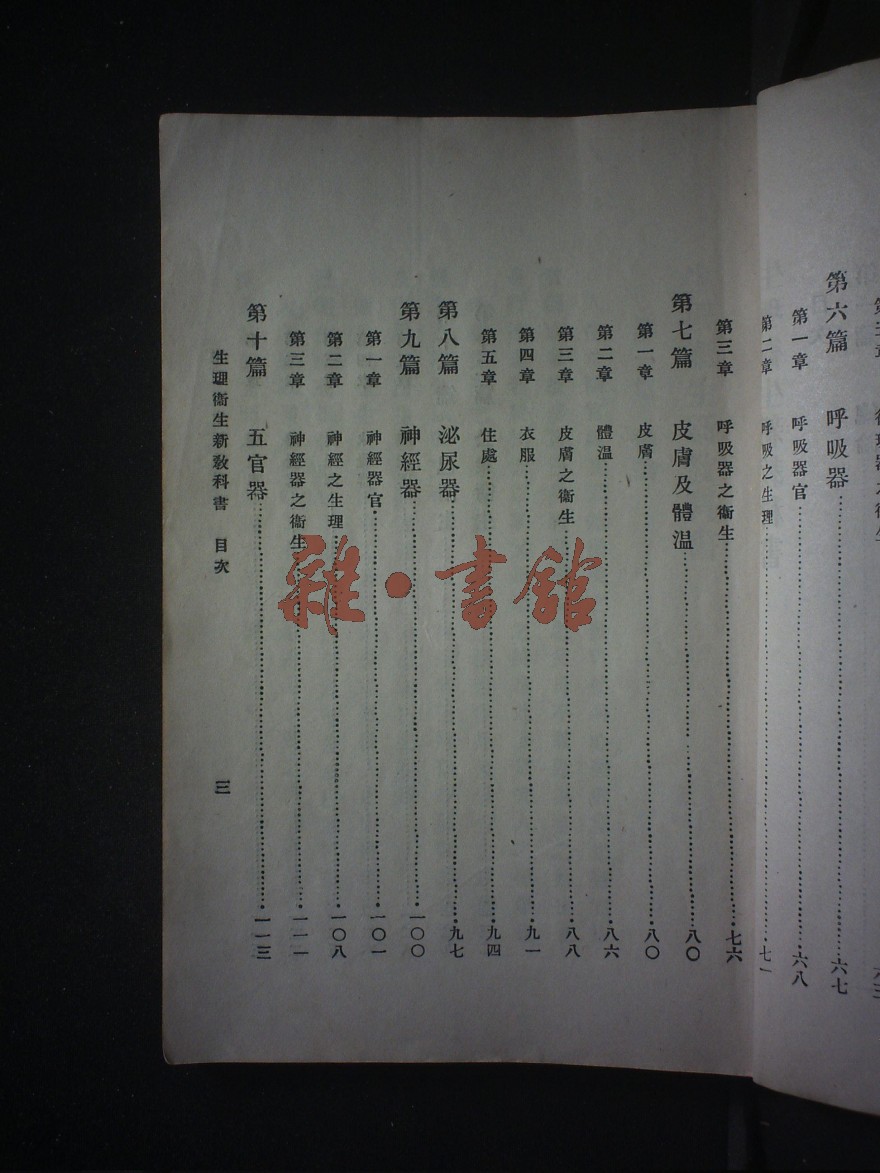 循環器之衞生
第六篇 呼吸器……六七
第一章 呼吸器官……六八
第二章 呼吸之生理……七一
第三章 呼吸器之衞生……七六
第七篇 皮膚及體温……八〇
第一章 皮膚……八〇
第二章 體温……八六
第三章 皮膚之衞生……八八
第四章 衣服……九一
第五章 住處……九四
第八篇 泌尿器……九七
第九篇 神經器……一〇〇
第一章 神經器官……一〇一
第二章 神經之生理……一〇八
第三章 神經器之衞生……一一一
第十篇 五官器……一一三
生理衞生新敎科書 目次
三
雜·書館